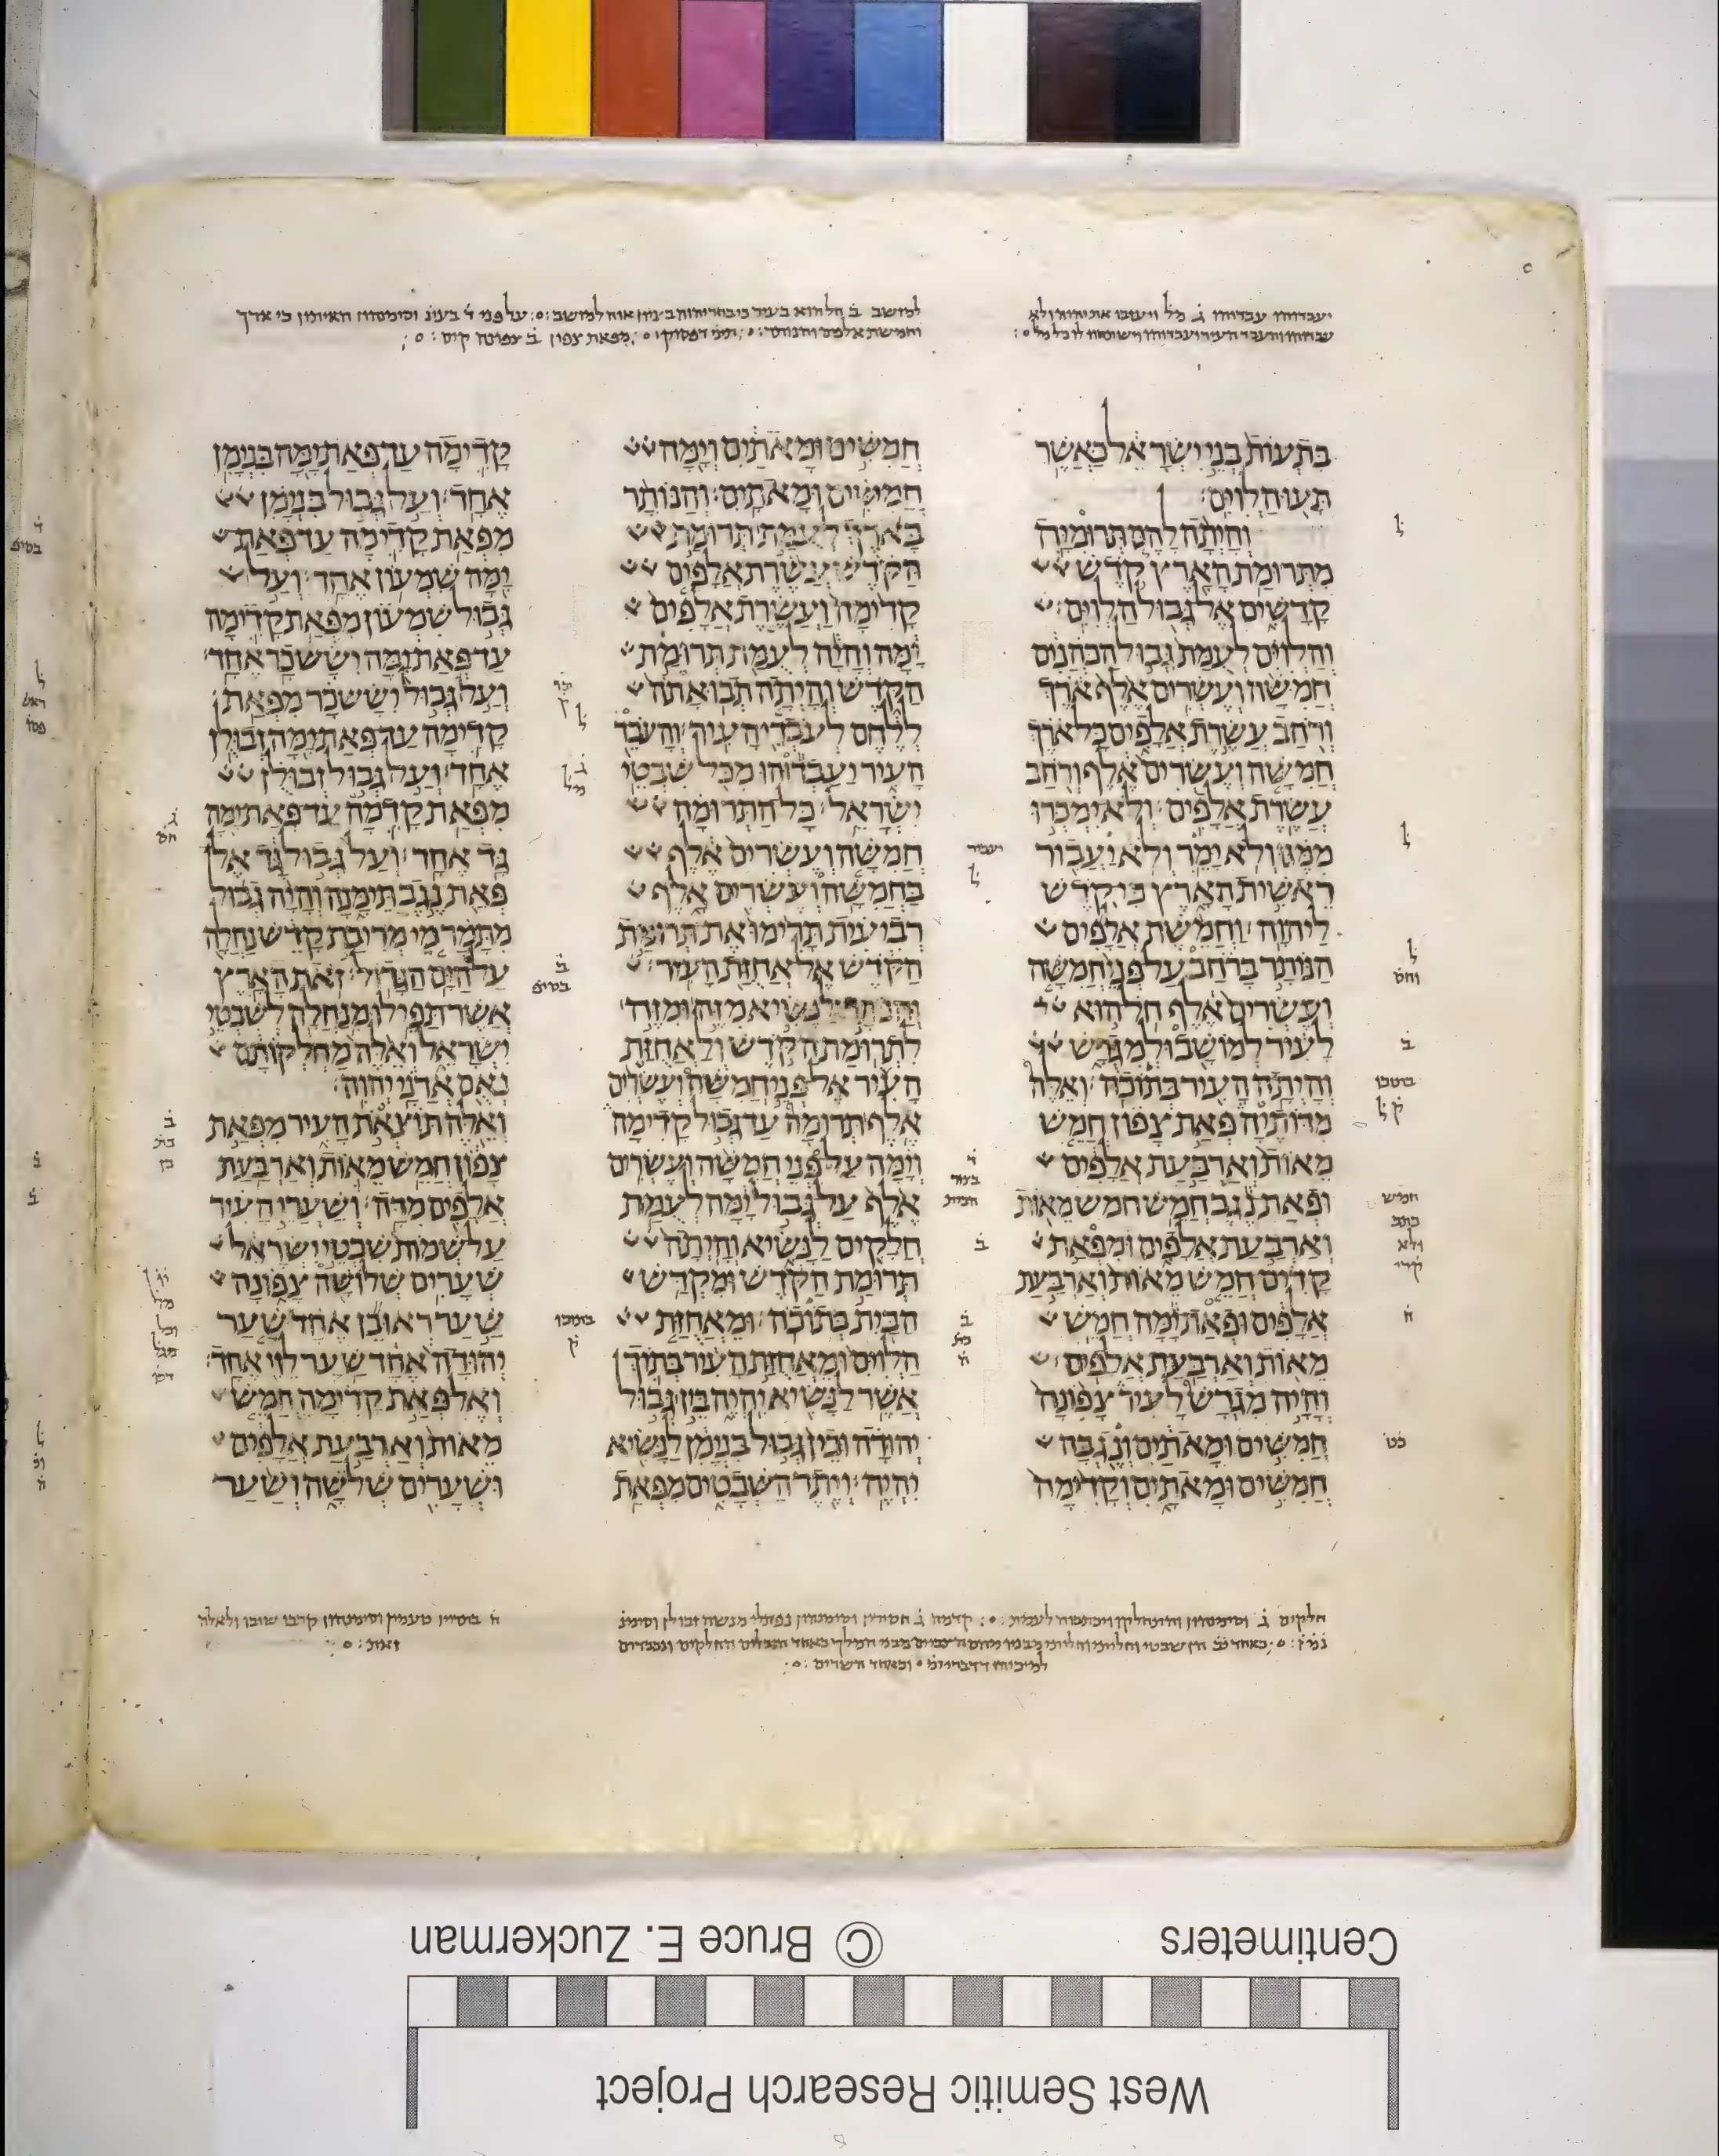 בתעות בני ישראל כאשר
תעו הלוים׃
והיתה להם תרומיה
מתרומת הארץ קדש
קדשים אל גבול הלוים׃
והלוים לעמת גבול הכהנים
חמשה ועשרים אלף ארך
ורחב עשרת אלפים כל ארך
חמשה ועשרים אלף ורחב
עשרת אלפים׃ ולא ימכרו
ממנו ולא ימר ולא יעבור
ראשית הארץ כי קדש
ליהוה׃ וחמשת אלפים
הנותר ברחב על פני חמשה
ועשרים אלף חל הוא
לעיר למושב ולמגרש
והיתה העיר בתוכה׃ ואלה
מדותיה פאת צפון חמש
מאות וארבעת אלפים
ופאת נגב חמש חמש מאות
וארבעת אלפים ומפאת
קדים חמש מאות וארבעת
אלפים ופאת ימה חמש
מאות וארבעת אלפים׃
והיה מגרש לעיר צפונה
חמשים ומאתים ונגבה
חמשים ומאתים וקדימה
חמשים ומאתים וימה
חמשים ומאתים׃ והנותר
בארך לעמת תרומת
הקדש עשרת אלפים
קדימה ועשרת אלפים
ימה והיה לעמת תרומת
הקדש והיתה תבואתה
ללחם לעבדי העיר׃ והעבד
העיר יעבדוהו מכל שבטי
ישראל׃ כל התרומה
חמשה ועשרים אלף
בחמשה ועשרים אלף
רביעית תרימו את תרומת
הקדש אל אחזת העיר׃
והנותר לנשיא מזה ומזה
לתרומת הקדש ולאחזת
העיר אל פני חמשה ועשרים
אלף תרומה עד גבול קדימה
וימה על פני חמשה ועשרים
אלף על גבול ימה לעמת
חלקים לנשיא והיתה
תרומת הקדש ומקדש
הבית בתוכה׃ ומאחזת
הלוים ומאחזת העיר בתוך
אשר לנשיא יהיה בין גבול
יהודה ובין גבול בנימן לנשיא
יהיה׃ ויתר השבטים מפאת
קדימה עד פאת ימה בנימן
אחד׃ ועל גבול בנימן
מפאת קדימה עד פאת
ימה שמעון אחד׃ ועל
גבול שמעון מפאת קדימה
עד פאת ימה יששכר אחד׃
ועל גבול יששכר מפאת
קדימה עד פאת ימה זבולן
אחד׃ ועל גבול זבולן
מפאת קדמה עד פאת ימה
גד אחד׃ ועל גבול גד אל
פאת נגב תימנה והיה גבול
מתמר מי מריבת קדש נחלה
על הים הגדול׃ זאת הארץ
אשר תפילו מנחלה לשבטי
ישראל ואלה מחלקותם
נאם אדני יהוה׃
ואלה תוצאת העיר מפאת
צפון חמש מאות וארבעת
אלפים מדה׃ ושערי העיר
על שמות שבטי ישראל
שערים שלושה צפונה
שער ראובן אחד שער
יהודה אחד שער לוי אחד׃
ואל פאת קדימה חמש
מאות וארבעת אלפים
ושערים שלשה ושער
Centimeters
© Bruce E. Zuckerman
West Semitic Research Project